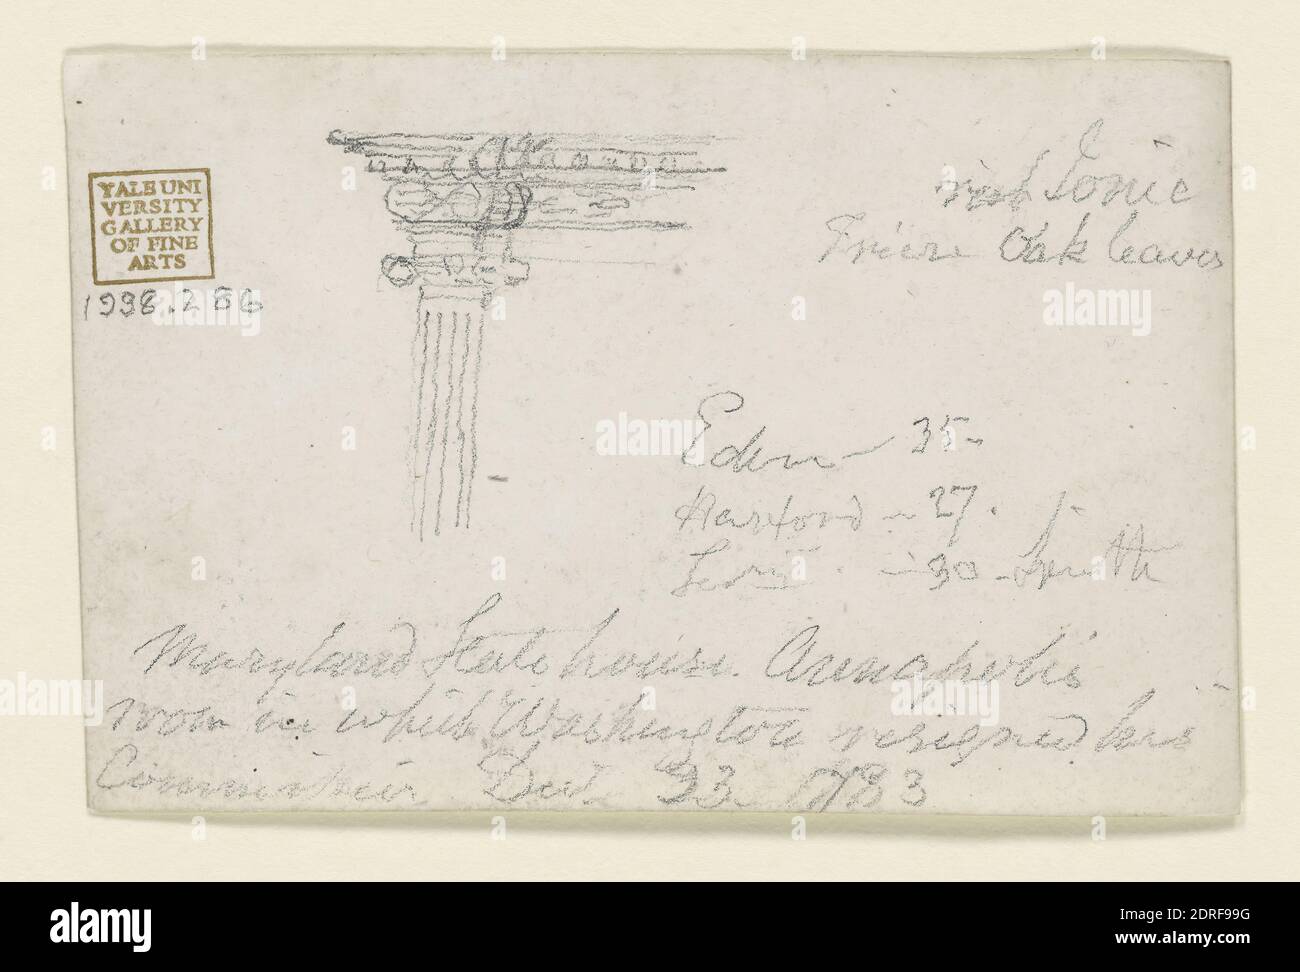 YALE UNI
VERSITY
GALLERY
OF FINE
ARTS
1998.286
rich Ionic
Frieze Oak leaves
Eden - 35-
Harford - 27.
30 - Smith
Maryland State house. Annapolis
room in which Washington resigned his
Commission Decr 23 1783
alamy
Image ID: 2DRF99G
www.alamy.com